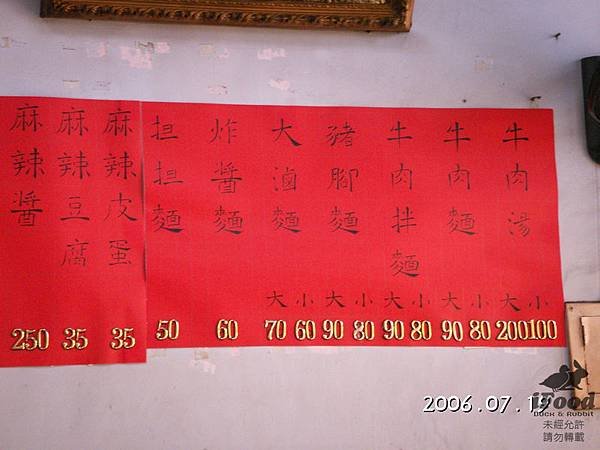 牛肉湯 大 小 200 100
牛肉麵 大 小 90 80
牛肉拌麵 大 小 90 80
豬腳麵 大 小 90 80
大滷麵 大 小 70 60
炸醬麵 60
担担麵 50
麻辣皮蛋 35
麻辣豆腐 35
麻辣醬 250
2006.07.19
iFood
Duck & Rabbit
未經允許
請勿轉載